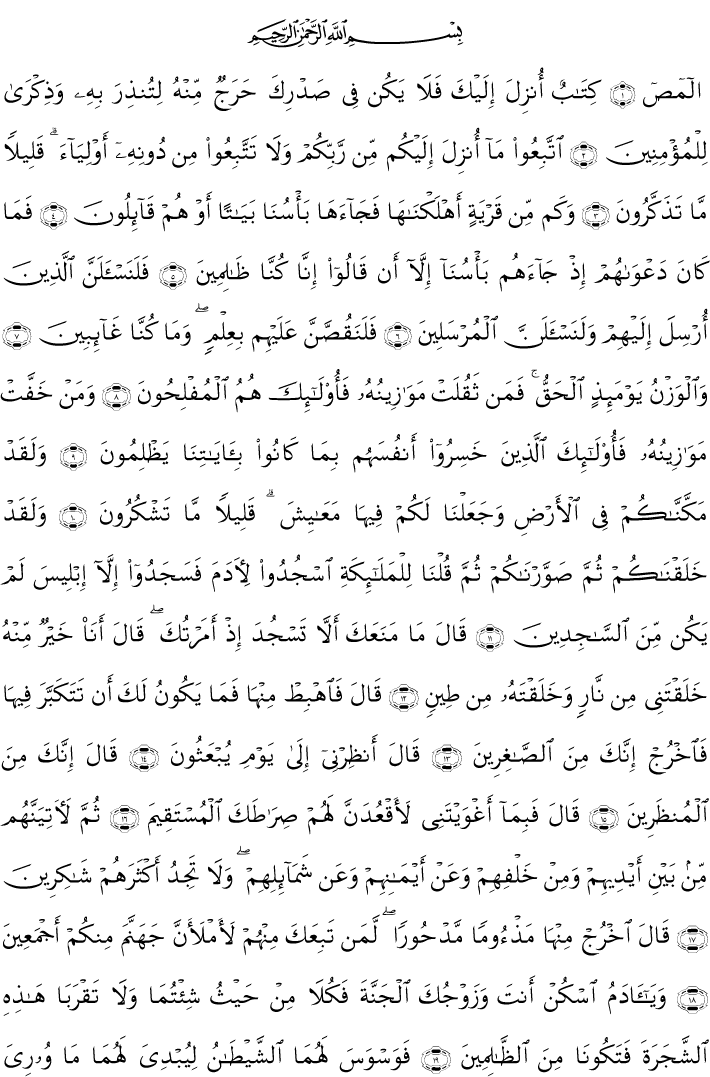 بِسْمِ ٱللَّهِ ٱلرَّحْمَٰنِ ٱلرَّحِيمِ
الٓمٓصٓ ١ كِتَٰبٌ أُنزِلَ إِلَيْكَ فَلَا يَكُن فِى صَدْرِكَ حَرَجٌ مِّنْهُ لِتُنذِرَ بِهِۦ وَذِكْرَىٰ
لِلْمُؤْمِنِينَ ٢ ٱتَّبِعُوا۟ مَآ أُنزِلَ إِلَيْكُم مِّن رَّبِّكُمْ وَلَا تَتَّبِعُوا۟ مِن دُونِهِۦٓ أَوْلِيَآءَ ۗ قَلِيلًا
مَّا تَذَكَّرُونَ ٣ وَكَم مِّن قَرْيَةٍ أَهْلَكْنَٰهَا فَجَآءَهَا بَأْسُنَا بَيَٰتًا أَوْ هُمْ قَآئِلُونَ ٤ فَمَا
كَانَ دَعْوَىٰهُمْ إِذْ جَآءَهُم بَأْسُنَآ إِلَّآ أَن قَالُوٓا۟ إِنَّا كُنَّا ظَٰلِمِينَ ٥ فَلَنَسْـَٔلَنَّ ٱلَّذِينَ
أُرْسِلَ إِلَيْهِمْ وَلَنَسْـَٔلَنَّ ٱلْمُرْسَلِينَ ٦ فَلَنَقُصَّنَّ عَلَيْهِم بِعِلْمٍ ۖ وَمَا كُنَّا غَآئِبِينَ ٧
وَٱلْوَزْنُ يَوْمَئِذٍ ٱلْحَقُّ ۚ فَمَن ثَقُلَتْ مَوَٰزِينُهُۥ فَأُو۟لَٰٓئِكَ هُمُ ٱلْمُفْلِحُونَ ٨ وَمَنْ خَفَّتْ
مَوَٰزِينُهُۥ فَأُو۟لَٰٓئِكَ ٱلَّذِينَ خَسِرُوٓا۟ أَنفُسَهُم بِمَا كَانُوا۟ بِـَٔايَٰتِنَا يَظْلِمُونَ ٩ وَلَقَدْ
مَكَّنَّٰكُمْ فِى ٱلْأَرْضِ وَجَعَلْنَا لَكُمْ فِيهَا مَعَٰيِشَ ۗ قَلِيلًا مَّا تَشْكُرُونَ ١٠ وَلَقَدْ
خَلَقْنَٰكُمْ ثُمَّ صَوَّرْنَٰكُمْ ثُمَّ قُلْنَا لِلْمَلَٰٓئِكَةِ ٱسْجُدُوا۟ لِءَادَمَ فَسَجَدُوٓا۟ إِلَّآ إِبْلِيسَ لَمْ
يَكُن مِّنَ ٱلسَّٰجِدِينَ ١١ قَالَ مَا مَنَعَكَ أَلَّا تَسْجُدَ إِذْ أَمَرْتُكَ ۖ قَالَ أَنَا۠ خَيْرٌ مِّنْهُ
خَلَقْتَنِى مِن نَّارٍ وَخَلَقْتَهُۥ مِن طِينٍ ١٢ قَالَ فَٱهْبِطْ مِنْهَا فَمَا يَكُونُ لَكَ أَن تَتَكَبَّرَ فِيهَا
فَٱخْرُجْ إِنَّكَ مِنَ ٱلصَّٰغِرِينَ ١٣ قَالَ أَنظِرْنِىٓ إِلَىٰ يَوْمِ يُبْعَثُونَ ١٤ قَالَ إِنَّكَ مِنَ
ٱلْمُنظَرِينَ ١٥ قَالَ فَبِمَآ أَغْوَيْتَنِى لَأَقْعُدَنَّ لَهُمْ صِرَٰطَكَ ٱلْمُسْتَقِيمَ ١٦ ثُمَّ لَءَاتِيَنَّهُم
مِّنۢ بَيْنِ أَيْدِيهِمْ وَمِنْ خَلْفِهِمْ وَعَنْ أَيْمَٰنِهِمْ وَعَن شَمَآئِلِهِمْ ۖ وَلَا تَجِدُ أَكْثَرَهُمْ شَٰكِرِينَ
١٧ قَالَ ٱخْرُجْ مِنْهَا مَذْءُومًا مَّدْحُورًا ۖ لَّمَن تَبِعَكَ مِنْهُمْ لَأَمْلَأَنَّ جَهَنَّمَ مِنكُمْ أَجْمَعِينَ
١٨ وَيَٰٓـَٔادَمُ ٱسْكُنْ أَنتَ وَزَوْجُكَ ٱلْجَنَّةَ فَكُلَا مِنْ حَيْثُ شِئْتُمَا وَلَا تَقْرَبَا هَٰذِهِ
ٱلشَّجَرَةَ فَتَكُونَا مِنَ ٱلظَّٰلِمِينَ ١٩ فَوَسْوَسَ لَهُمَا ٱلشَّيْطَٰنُ لِيُبْدِىَ لَهُمَا مَا وُۥرِىَ